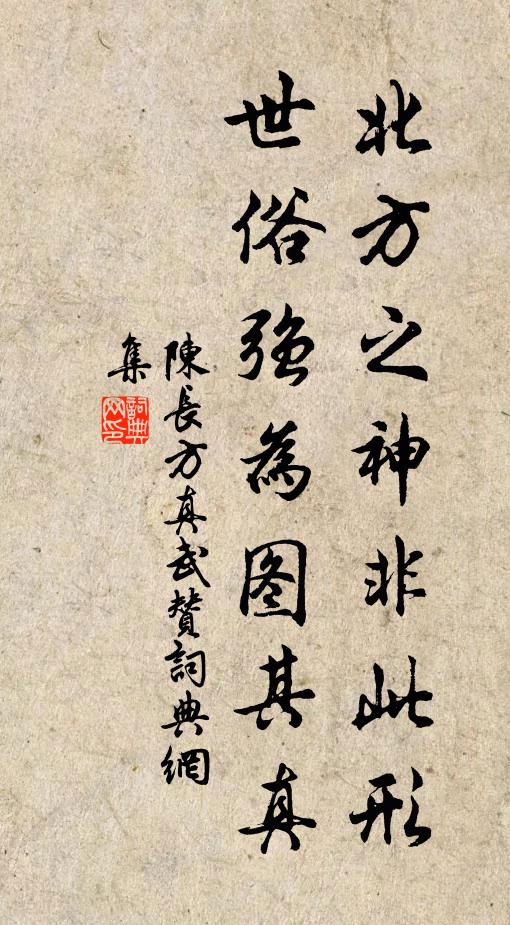 北方之神非此形
世俗強為图其真
陳長方真武贊詞典網
集
詞典
网印